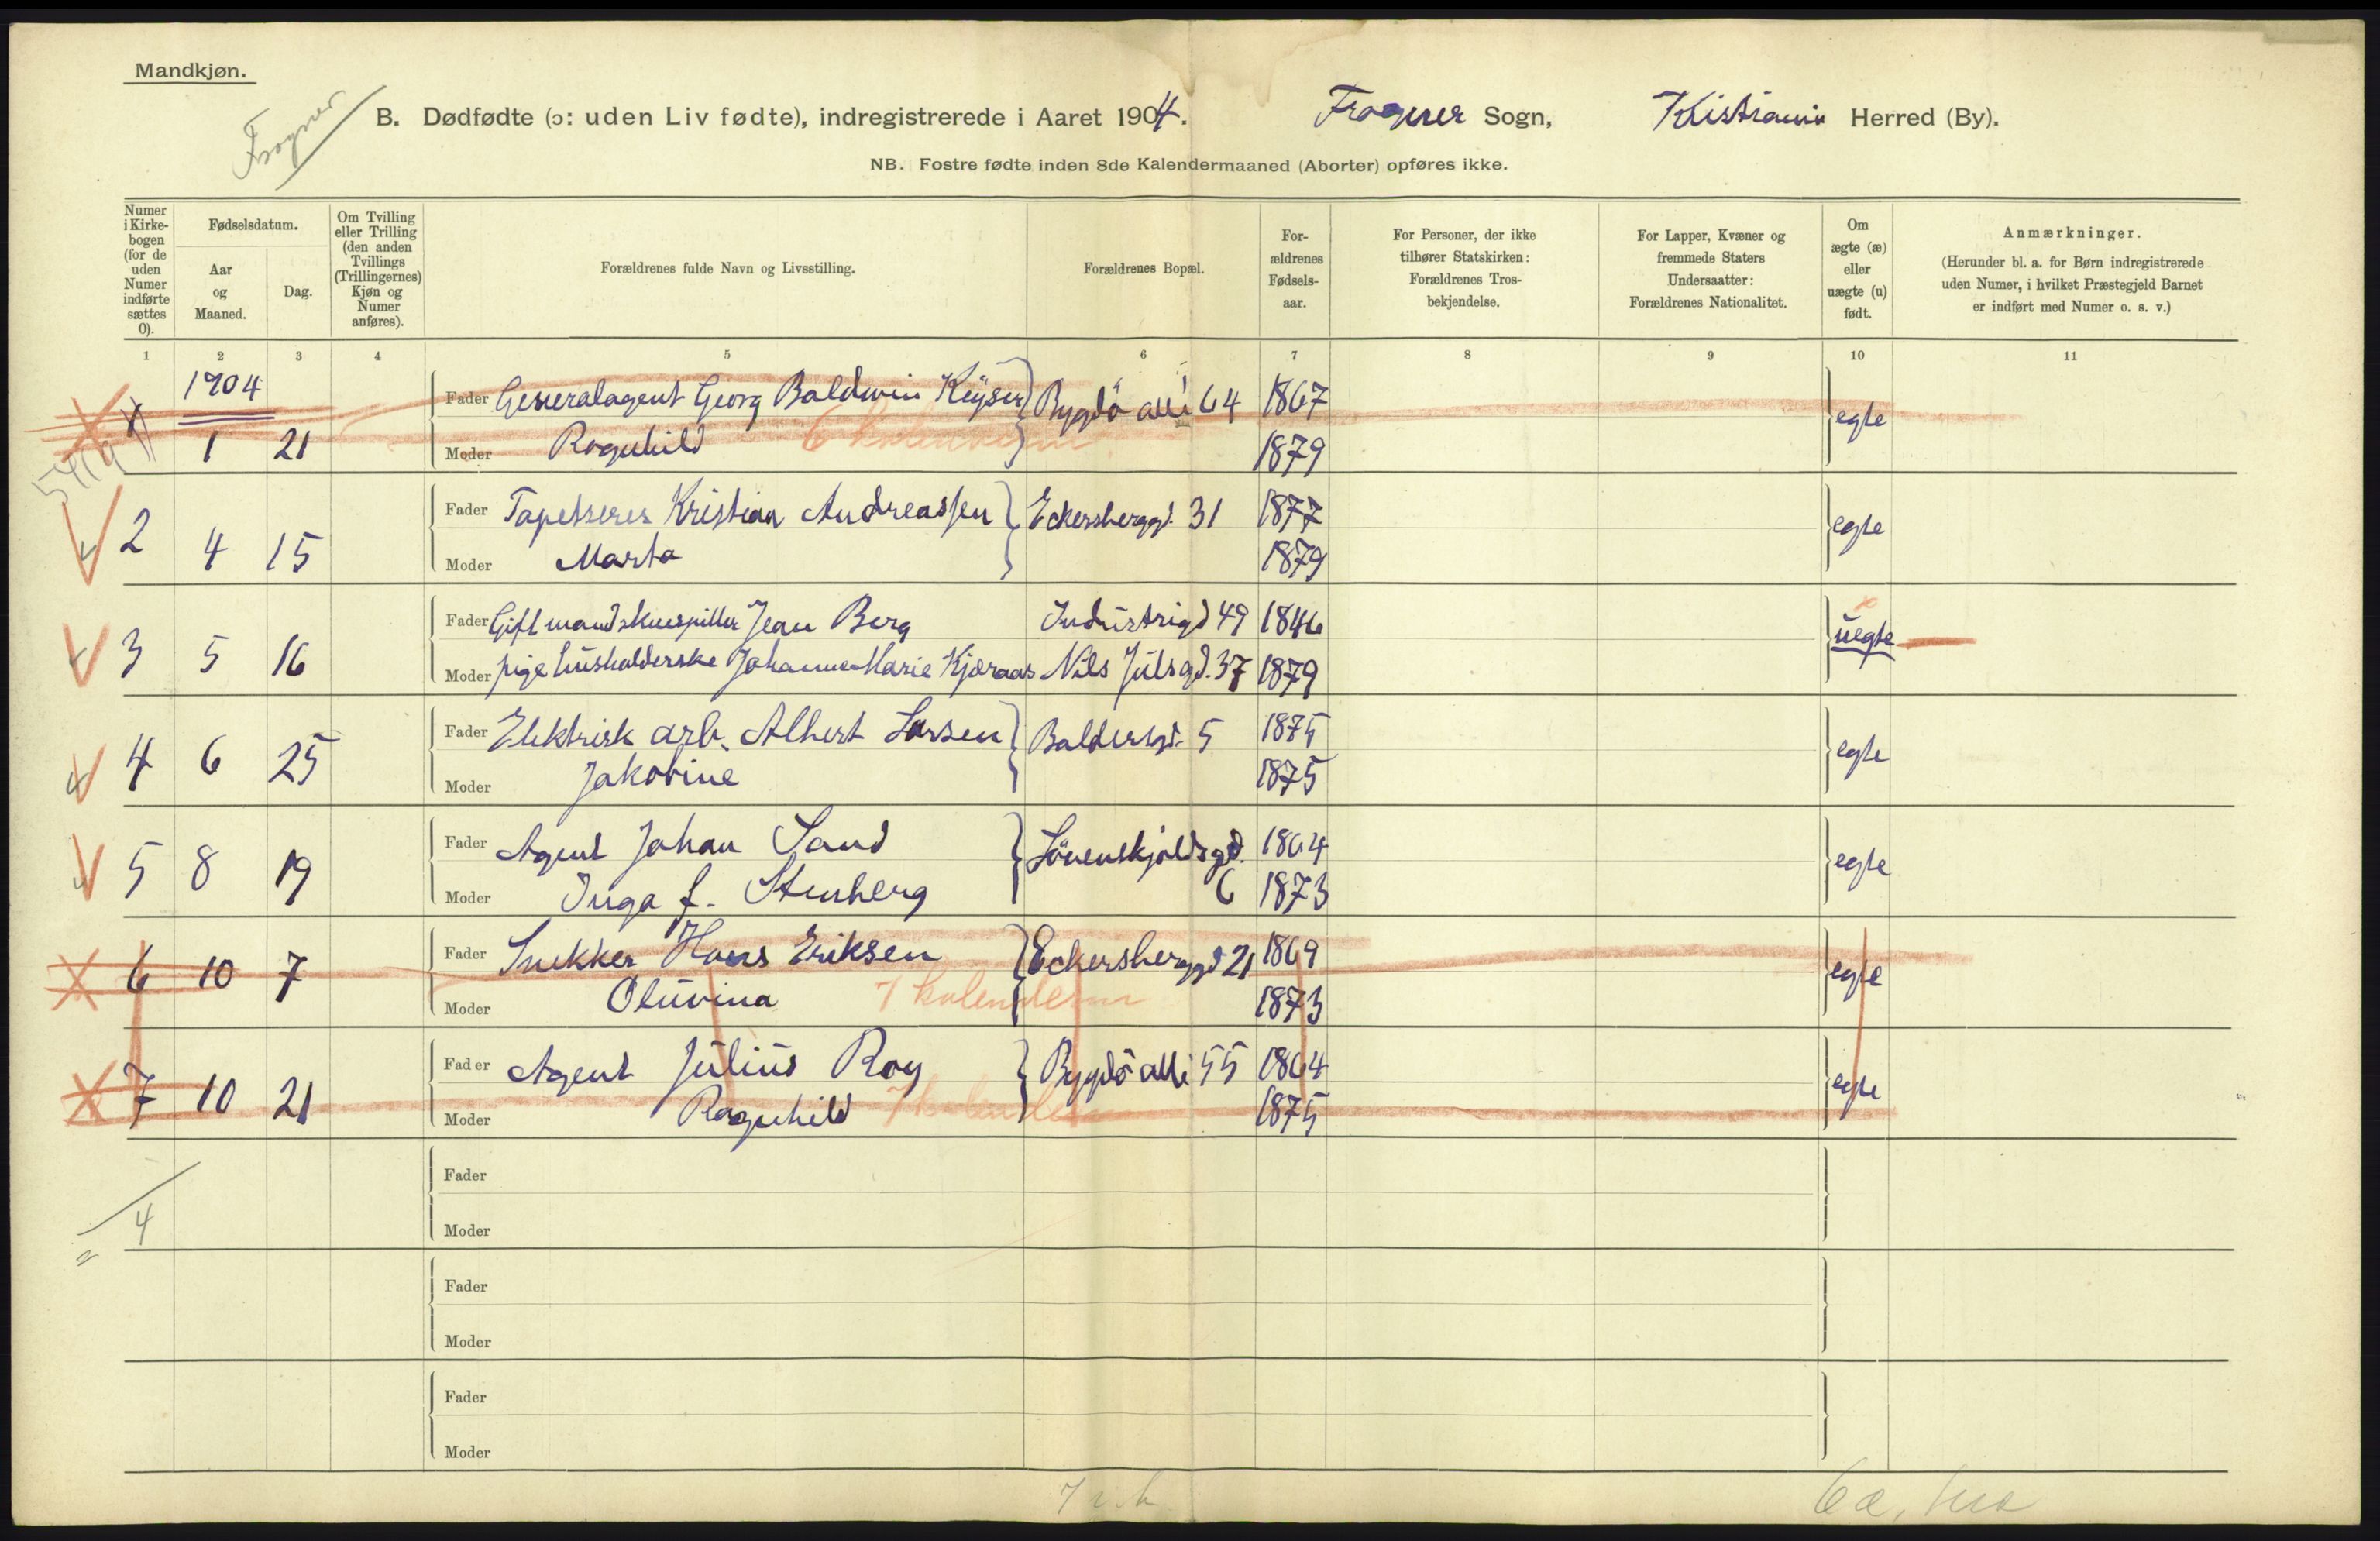 Mandkjøn.
Frogner
B. Dødfødte (ɔ: uden Liv fødte), indregistrerede i Aaret 1904. Frogner Sogn, Kristiania Herred (By).
NB. Fostre fødte inden 8de Kalendermaaned (Aborter) opføres ikke.
Numer i Kirke-bogen (for de uden Numer indførte sættes 0).
Fødselsdatum.
Aar og Maaned.
Dag.
Om Tvilling eller Trilling (den anden Tvillings (Trillingernes) Kjøn og Numer anføres).
Forældrenes fulde Navn og Livsstilling.
Forældrenes Bopæl.
For-ældrenes Fødsels-aar.
For Personer, der ikke tilhører Statskirken: Forældrenes Tros-bekjendelse.
For Lapper, Kvæner og fremmede Staters Undersaatter: Forældrenes Nationalitet.
Om ægte (æ) eller uægte (u) født.
Anmærkninger.
(Herunder bl. a. for Børn indregistrerede uden Numer, i hvilket Præstegjeld Barnet er indført med Numer o. s. v.)
1 2 3 4 5 6 7 8 9 10 11
1904
Fader Generalagent Georg Baldwin Keÿser Bygdö allé 64 1867 egte
1 1 21 Moder Ragnhild 6 kalenderm 1879
Fader Tapetserer Kristian Andreassen Eckersberggd. 31 1877 egte
2 4 15 Moder Marta 1879
Fader Gift mand skuespiller Jean Berg Industrigd 49 1846 uegte
3 5 16 Moder pige husholderske Johanne Marie Kjæraas Nils Julsgd. 37 1879
Fader Elektrisk arb. Albert Larsen Baldersgd. 5 1875 egte
4 6 25 Moder Jakobine 1875
Fader Agent Johan Sand Lövenskjoldsgd. 1864 egte
5 8 19 Moder Inga f. Stenberg 6 1873
Fader Snekker Hans Eriksen Eckersberggd 21 1869 egte
6 10 7 Moder Oluvina 7 kalenderm 1873
Fader Agent Julius Roy Bygdö allé 55 1864 egte
7 10 21 Moder Ragnhild 7 kalenderm 1875
Fader
4 Moder
Fader
Moder
Fader
Moder